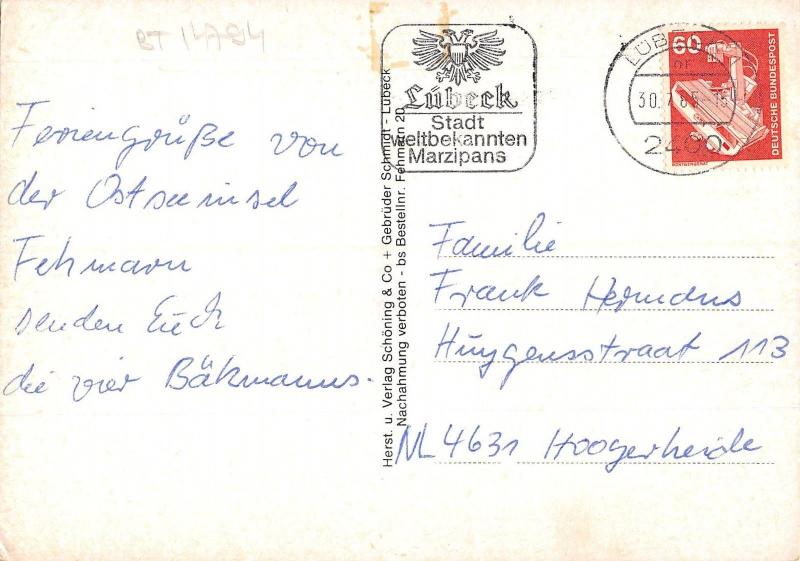 BT 14794
Feriengrüße von
der Ostseeinsel
Fehmarn
senden Euch
die vier Bäkmanns.
Lübeck
Stadt
weltbekannten
Marzipans
LÜBECK
30.7.8
2400
60
DEUTSCHE BUNDESPOST
Herst. u. Verlag Schöning & Co + Gebrüder Schmidt - Lübeck
Nachahmung verboten - bs Bestellnr. Fehmarn 20
Familie
Frank Hermans
Huygensstraat 113
NL 4631 Hoogerheide